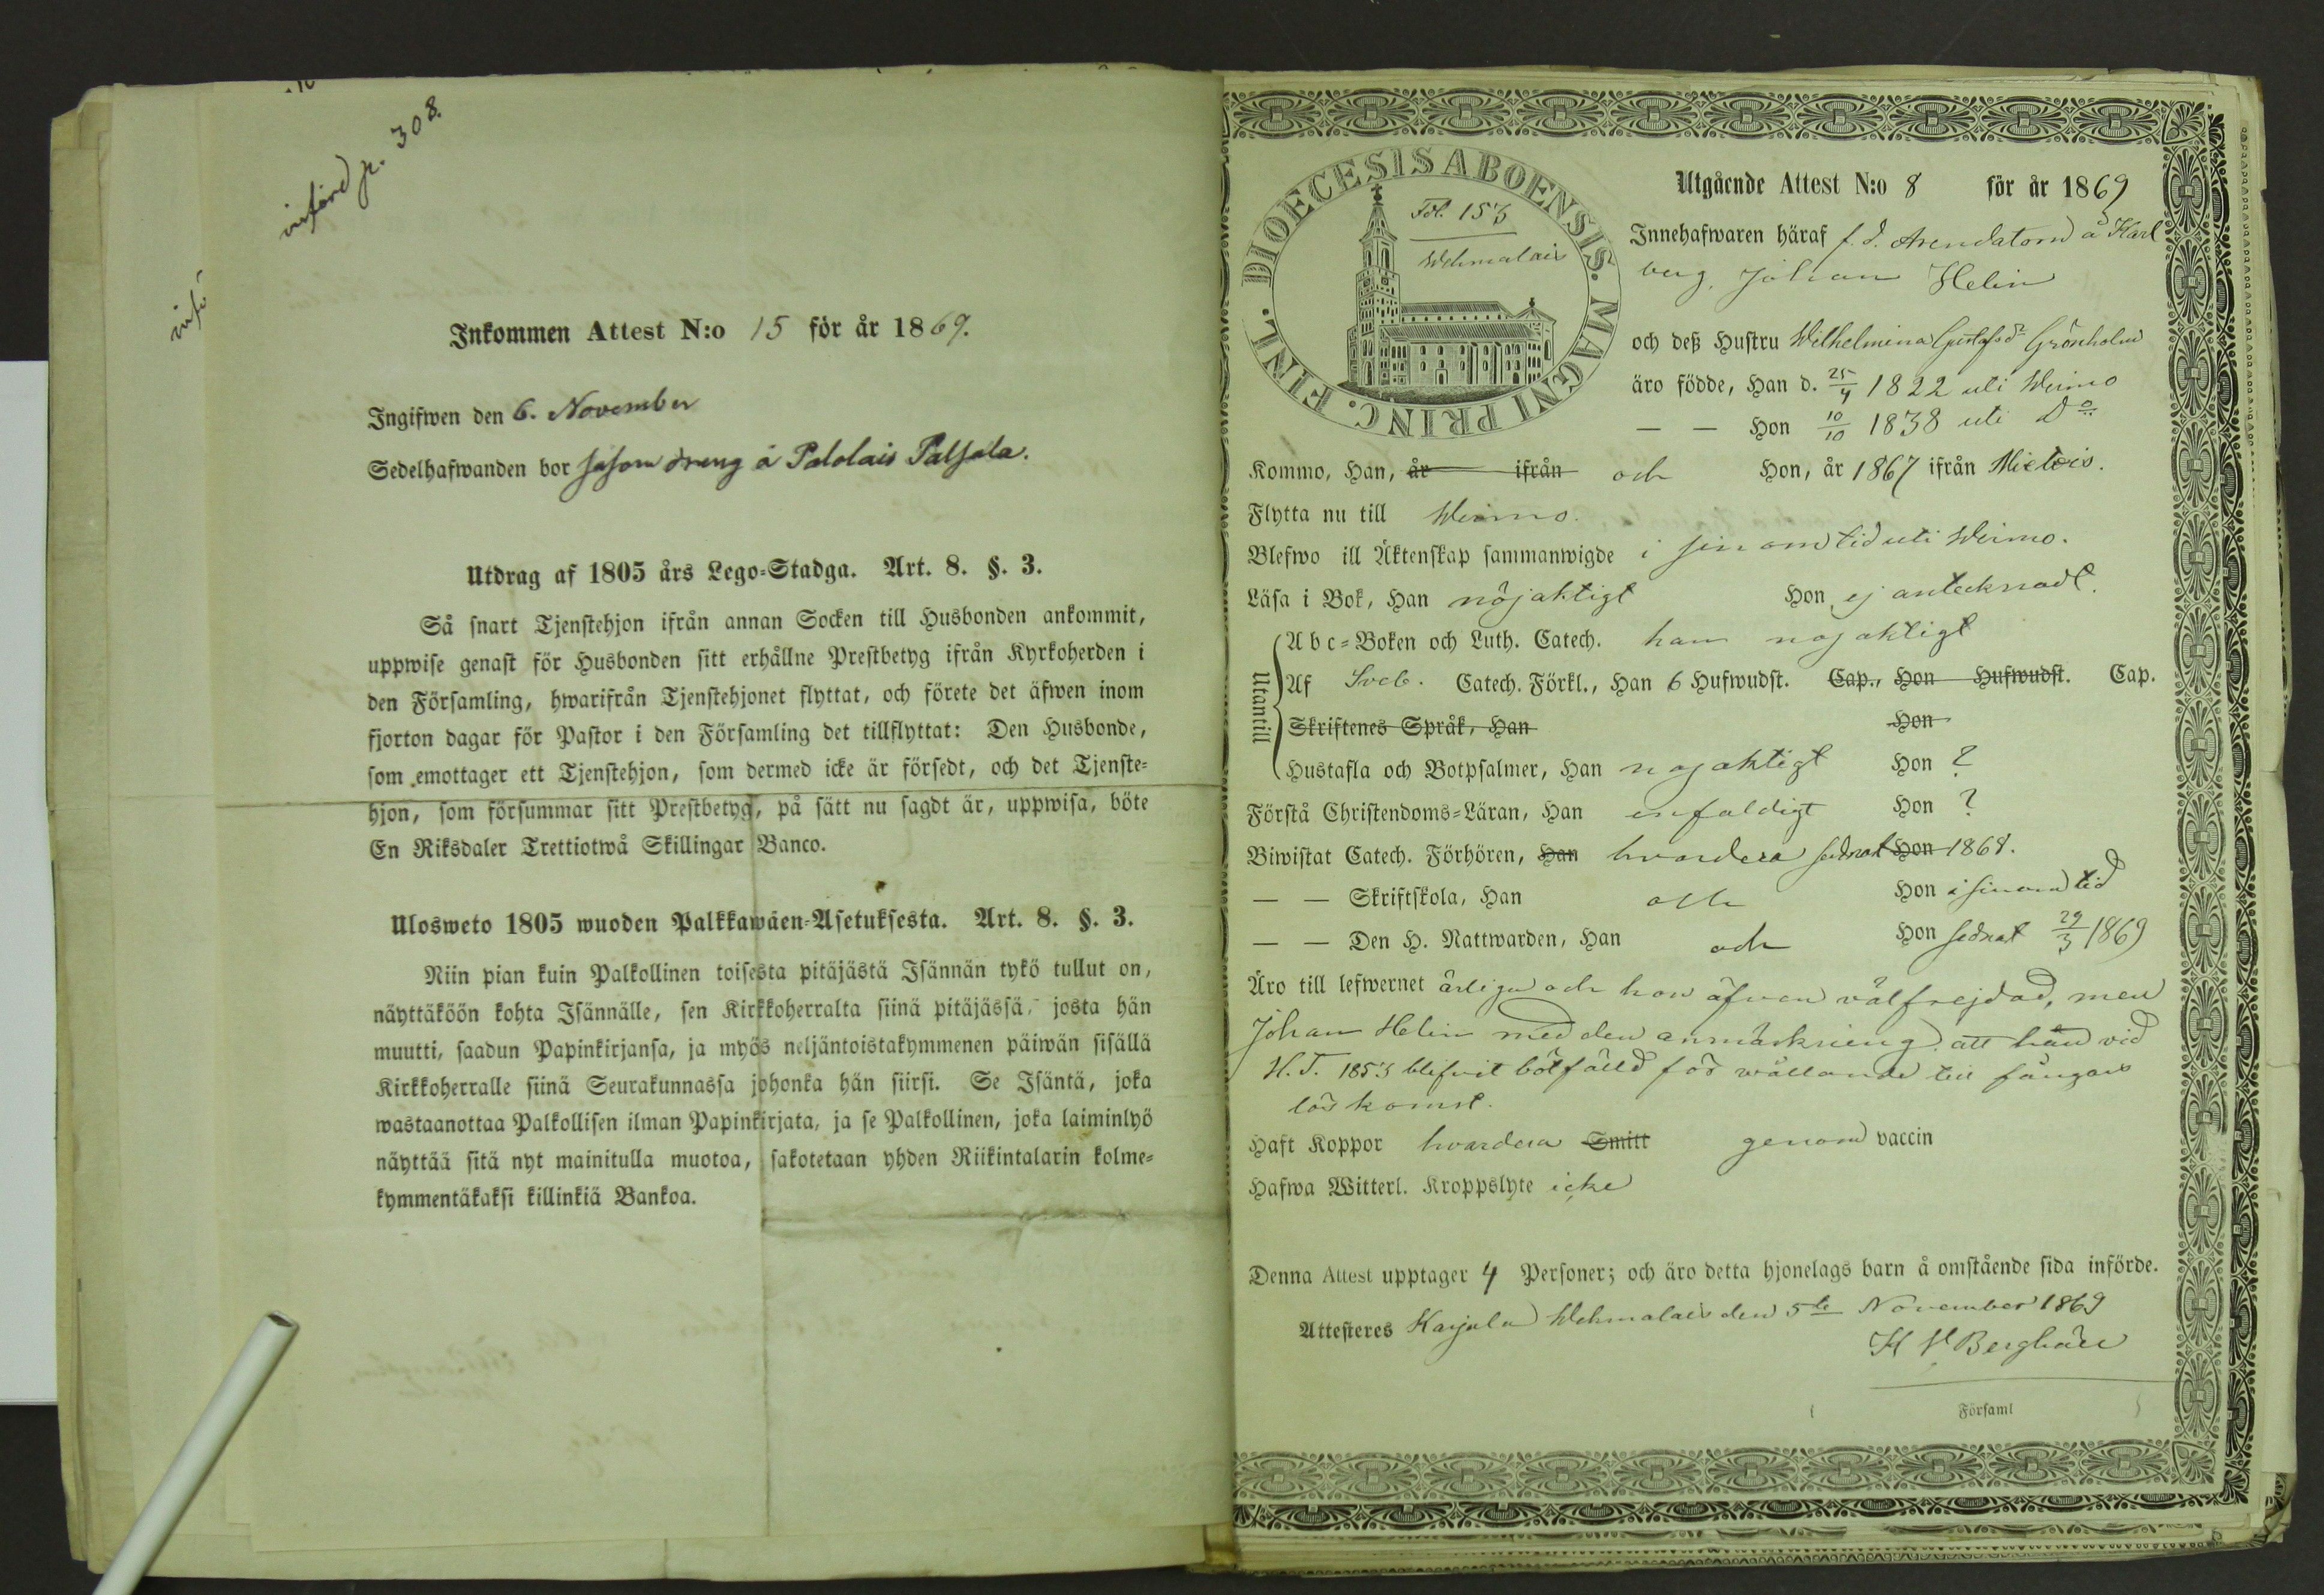 införd p. 308.
inf
Inkommen Attest N:o 15 för år 1869.
Ingifwen den 6. November
Sedelhafwanden bor såsom dreng å Palolais Palsala.
Utdrag af 1805 års Lego-Stadga. Art. 8. §. 3.
Så snart Tjenstehjon ifrån annan Socken till Husbonden ankommit,
uppwise genast för Husbonden sitt erhållne Prestbetyg ifrån Kyrkoherden i
den Församling, hwarifrån Tjenstehjonet flyttat, och förete det äfwen inom
fjorton dagar för Pastor i den Församling det tillflyttat: Den Husbonde,
som emottager ett Tjenstehjon, som dermed icke är försedt, och det Tjenste-
hjon, som försummar sitt Prestbetyg, på sätt nu sagdt är, uppwisa, böte
En Riksdaler Trettiotwå Skillingar Banco.
Ulosweto 1805 wuoden Palkkawäen-Asetuksesta. Art. 8. §. 3.
Niin pian kuin Palkollinen toisesta pitäjästä Isännän tykö tullut on,
näyttäköön kohta Isännälle, sen Kirkkoherralta siinä pitäjässä, josta hän
muutti, saadun Papinkirjansa, ja myös neljäntoistakymmenen päiwän sisällä
Kirkkoherralle siinä Seurakunnassa johonka hän siirsi. Se Isäntä, joka
wastaanottaa Palkollisen ilman Papinkirjata, ja se Palkollinen, joka laiminlyö
näyttää sitä nyt mainitulla muotoa, sakotetaan yhden Riikintalarin kolme-
kymmentäkaksi killinkiä Bankoa.
DIOECESIS ABOENSIS. MAGNI PRINC. FINL.
Fol. 153
Wehmalais
Utgående Attest N:o 8 för år 1869
Innehafwaren häraf f.d. Arendatorn å Karl
berg, Johan Helin
och deß Hustru Wilhelmina Gustafsdr Grönholm
äro födde, Han d. 25/4 1822 uti Wirmo
— — Hon 10/10 1838 uti Do
Kommo, Han, år ifrån och Hon, år 1867 ifrån Mietois.
Flytta nu till Wirmo.
Blefwo ill Äktenskap sammanwigde i sinom tid uti Wirmo.
Läsa i Bok, Han nöjaktigt Hon ej antecknadt.
Utantill
Abc-Boken och Luth. Catech. han nöjaktigt
Af Sveb. Catech. Förkl., Han 6 Hufwudst. Cap., Hon Hufwudst. Cap.
Skriftenes Språk, Han Hon
Hustafla och Botpsalmer, Han nöjaktigt Hon ?
Förstå Christendoms-Läran, Han enfaldigt Hon ?
Biwistat Catech. Förhören, Han hvardera sednast Hon 1868.
— — Skriftskola, Han och Hon i sinom tid
— — Den H. Nattwarden, Han och Hon sednast 29/3 1869
Äro till lefwernet ärliga och hon äfven välfrejdad, men
Johan Helin med den anmärkning att han vid
H. T. 1853 blifvit bötfälld för wållande till fångars
löskomst.
Haft Koppor hvardera Smitt genom vaccin
Hafwa Witterl. Kroppslyte icke
Denna Attest upptager 4 Personer; och äro detta hjonelags barn å omstående sida införde.
Attesteres Karjala Wehmalais den 5te November 1869
K V Berghäll
Församl